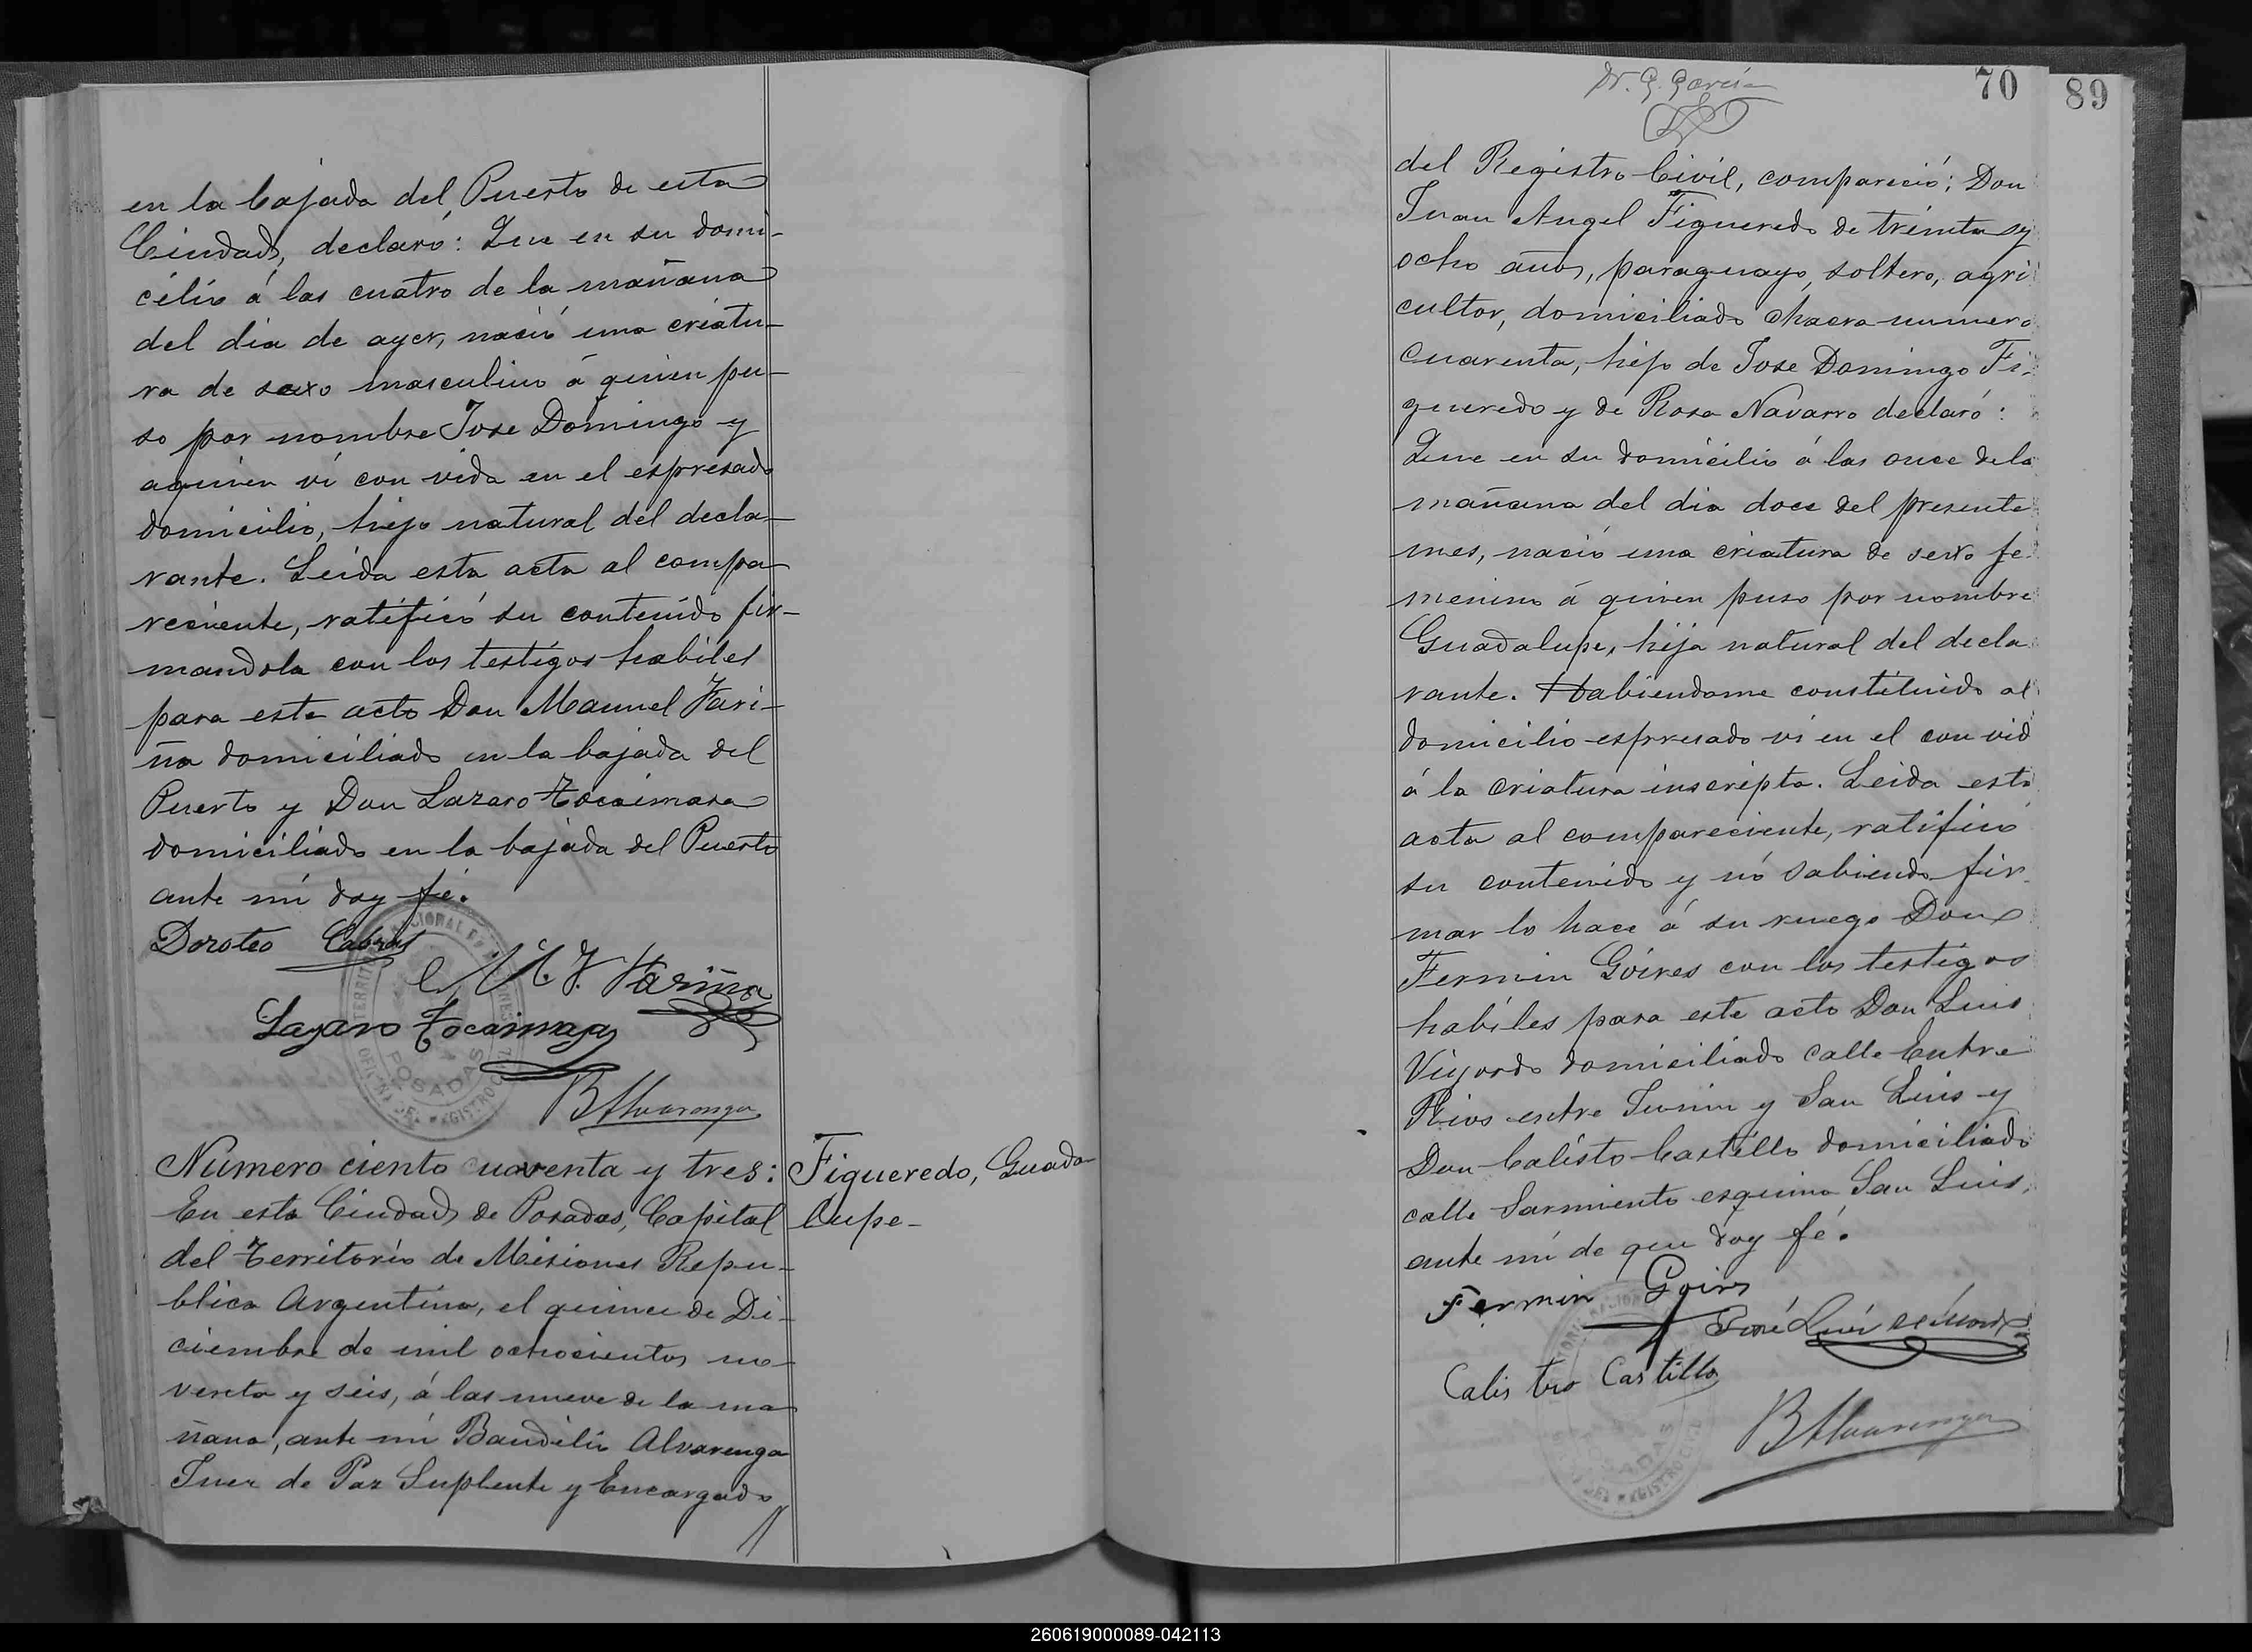 en la bajada del Puerto de esta
Ciudad, declaró: Que en su domi-
cilio á las cuatro de la mañana
del dia de ayer, nació una criatu-
ra de sexo masculino á quien pu-
so por nombre Jose Domingo y
aquien ví con vida en el espresado
domicilio, hijo natural del decla-
rante. Leida esta acta al compa-
reciente, ratificó su contenido fir-
mandola con los testigos habiles
para este acto Don Manuel Fari-
ña domiciliado en la bajada del
Puerto y Don Lazaro Tocaimaza
domiciliado en la bajada del Puerto
ante mí doy fé.
Doroteo Cabral
M. F. Fariña
Lazaro Tocaimaza
BAlvarenga
POSADAS
Número ciento cuarenta y tres:
En esta Ciudad de Posadas, Capital
del Territorio de Misiones Repu-
blica Argentina, el quince de Di-
ciembre de mil ochocientos no-
venta y seis, á las nueve de la ma-
ñana, ante mí Baudilio Alvarenga
Juez de Paz Suplente y Encargado
Figueredo, Guada-
lupe-
Dr. G. García
70
89
del Registro Civil, compareció; Don
Juan Angel Figueredo de treinta y
ocho años, paraguayo, soltero, agri
cultor, domiciliado chacra numero
cuarenta, hijo de Jose Domingo Fi-
gueredo y de Rosa Navarro declaró:
Que en su domicilio á las once dela
mañana del dia doce del presente
mes, nació una criatura de sexo fe-
menino á quien puso por nombre
Guadalupe, hija natural del decla
rante. Habiendome constituido al
domicilio espresado ví en el con vid
á la criatura inscripta. Leida esta
acta al compareciente, ratificó
su contenido y nó sabiendo fir-
mar lo hace á su ruego Don
Fermin Goires con los testigos
habiles para este acto Don Luis
domiciliado calle Entre
Rios entre Junin y San Luis y
Don Calisto Castillo domiciliado
calle Sarmiento esquina San Luis,
ante mí de que doy fé.
Fermin Goires
José Luis
Calistro Castillo
BAlvarenga
260619000089-042113